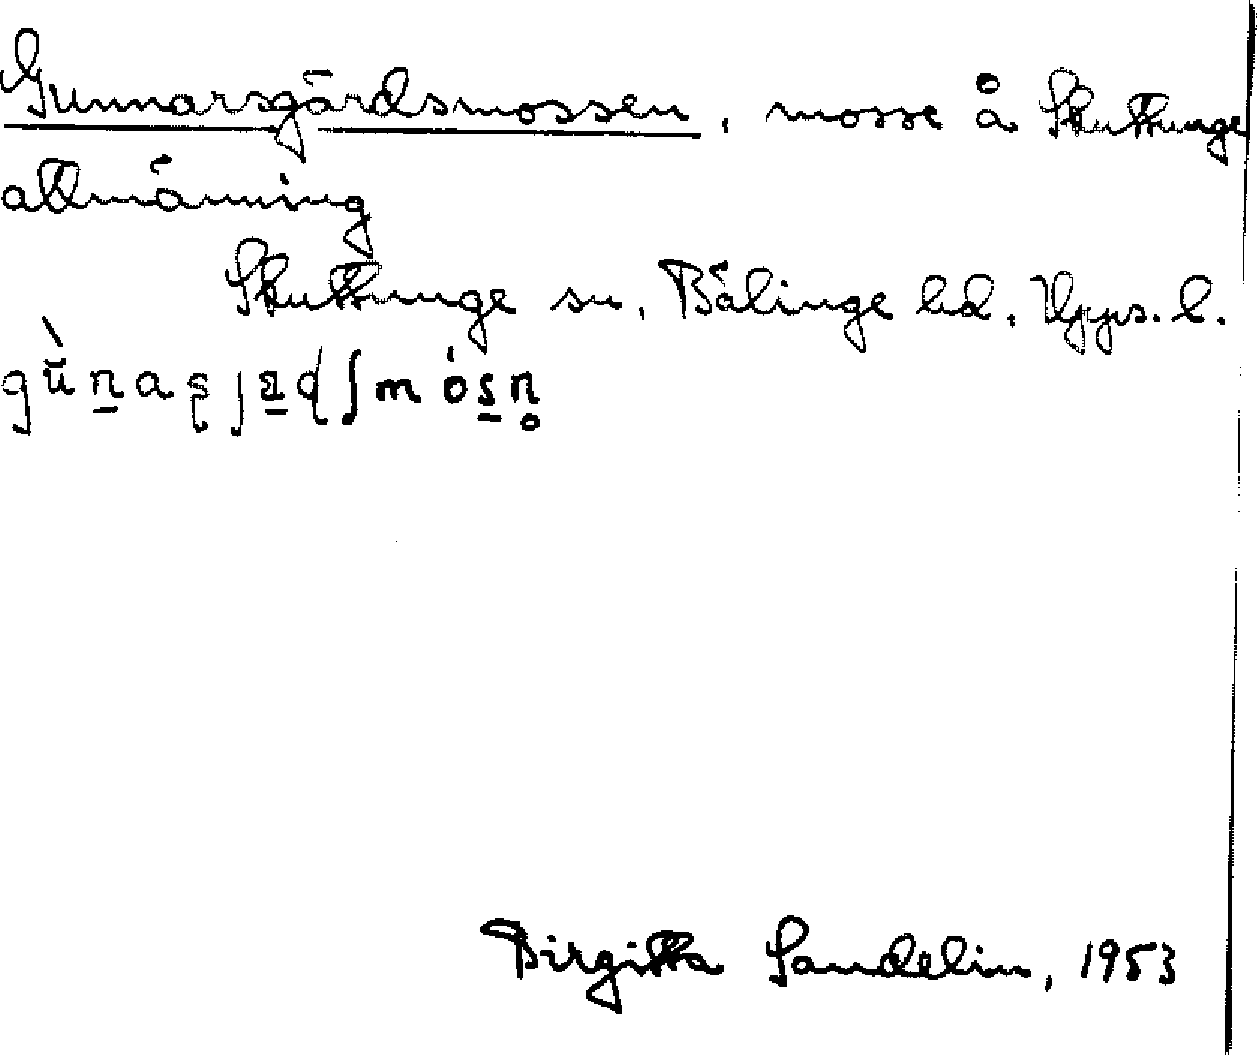 Gunnarsgårdsmossen, mosse å Skuttunge
allmänning
Skuttunge sn, Bälinge hd. Upps. l.
Birgitta Sandelin, 1953